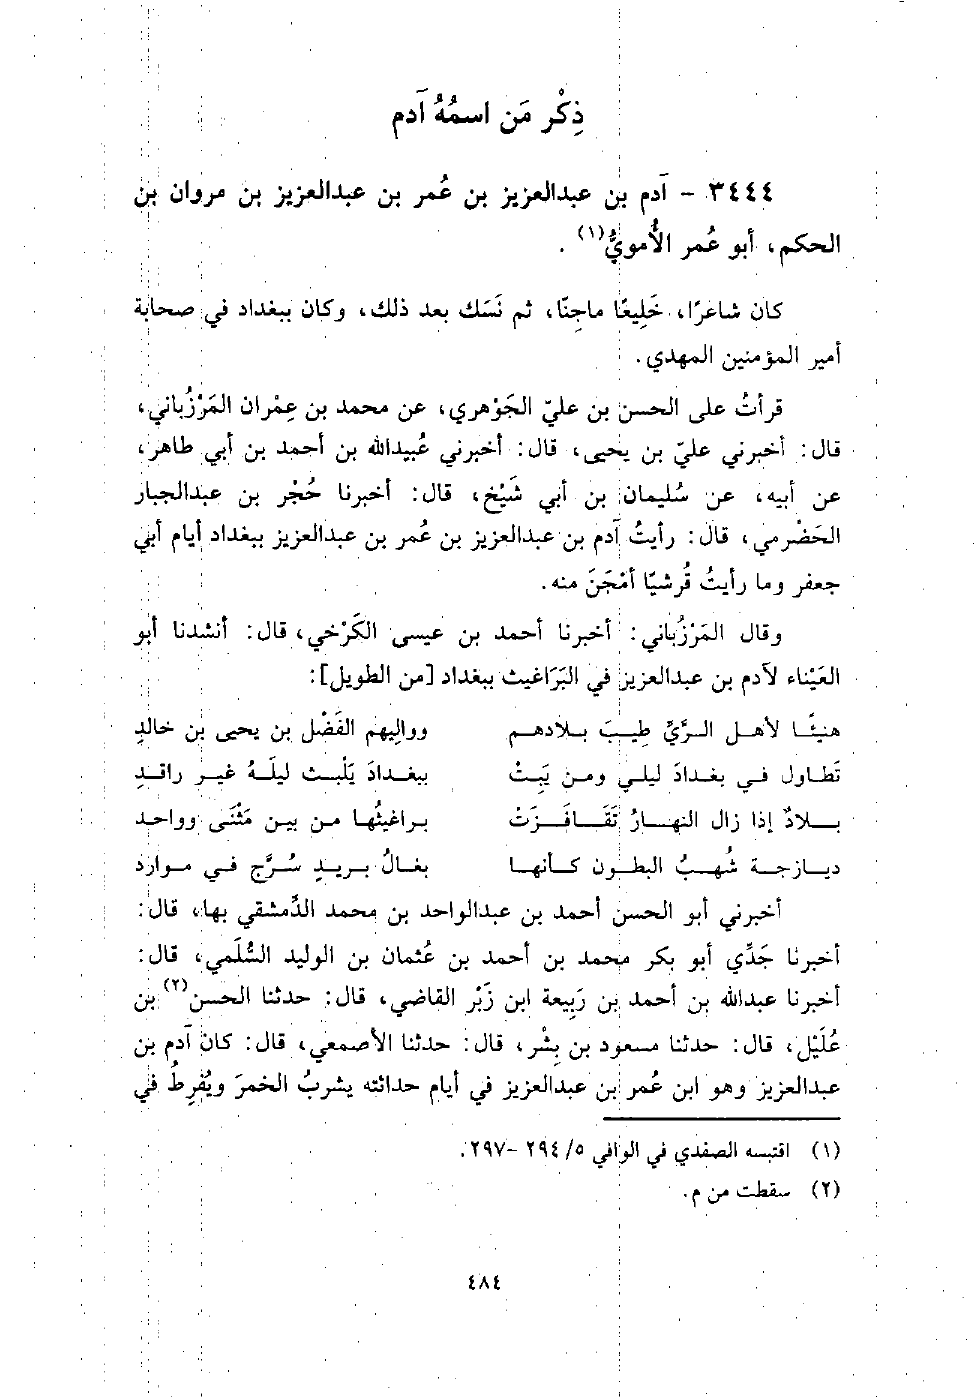 ذِكْر مَن اسمُهُ آدم
٣٤٤٤ - آدم بن عبدالعزيز بن عُمر بن عبدالعزيز بن مروان بن
الحكم، أبو عُمر الأُمويُّ(١) .
كان شاعرًا، خَلِيعًا ماجنًا، ثم نَسَك بعد ذلك، وكان ببغداد في صحابة
أمير المؤمنين المهدي.
قرأتُ على الحسن بن عليّ الجَوْهري، عن محمد بن عِمْران المَرْزُباني،
قال: أخبرني عليّ بن يحيى، قال: أخبرني عُبيدالله بن أحمد بن أبي طاهر،
عن أبيه، عن سُليمان بن أبي شَيْخ، قال: أخبرنا حُجْر بن عبدالجبار
الحَضْرمي، قال: رأيتُ آدم بن عبدالعزيز بن عُمر بن عبدالعزيز ببغداد أيام أبي
جعفر وما رأيتُ قُرشيًا أمْجَنَ منه.
وقال المَرْزُباني: أخبرنا أحمد بن عيسى الكَرْخي، قال: أنشدنا أبو
العَيْناء لآدم بن عبدالعزيز في البَرَاغيث ببغداد [من الطويل]:
هنيئًا لأهل الرَّيِّ طِيبَ بلادهم وواليهم الفَضْل بن يحيى بن خالدِ
تَطاول في بغدادَ ليلي ومن يَبِتْ ببغدادَ يَلْبث ليلَهُ غير راقدِ
بلادٌ إذا زال النهارُ تَقَافَزَتْ براغيثُها من بين مَثْنَى وواحد
ديازجة شُهبُ البطون كأنها بغالُ بريدٍ سُرَّج في موارد
أخبرني أبو الحسن أحمد بن عبدالواحد بن محمد الدِّمشقي بها، قال:
أخبرنا جَدِّي أبو بكر محمد بن أحمد بن عُثمان بن الوليد السُّلَمي، قال:
أخبرنا عبدالله بن أحمد بن رَبِيعة ابن زَبْر القاضي، قال: حدثنا الحسن(٢) بن
عُلَيْل، قال: حدثنا مسعود بن بِشْر، قال: حدثنا الأصمعي، قال: كان آدم بن
عبدالعزيز وهو ابن عُمر بن عبدالعزيز في أيام حداثته يشربُ الخمرَ ويُفرِطُ في
(١) اقتبسه الصفدي في الوافي ٥/ ٢٩٤ -٢٩٧.
(٢) سقطت من م.
٤٨٤